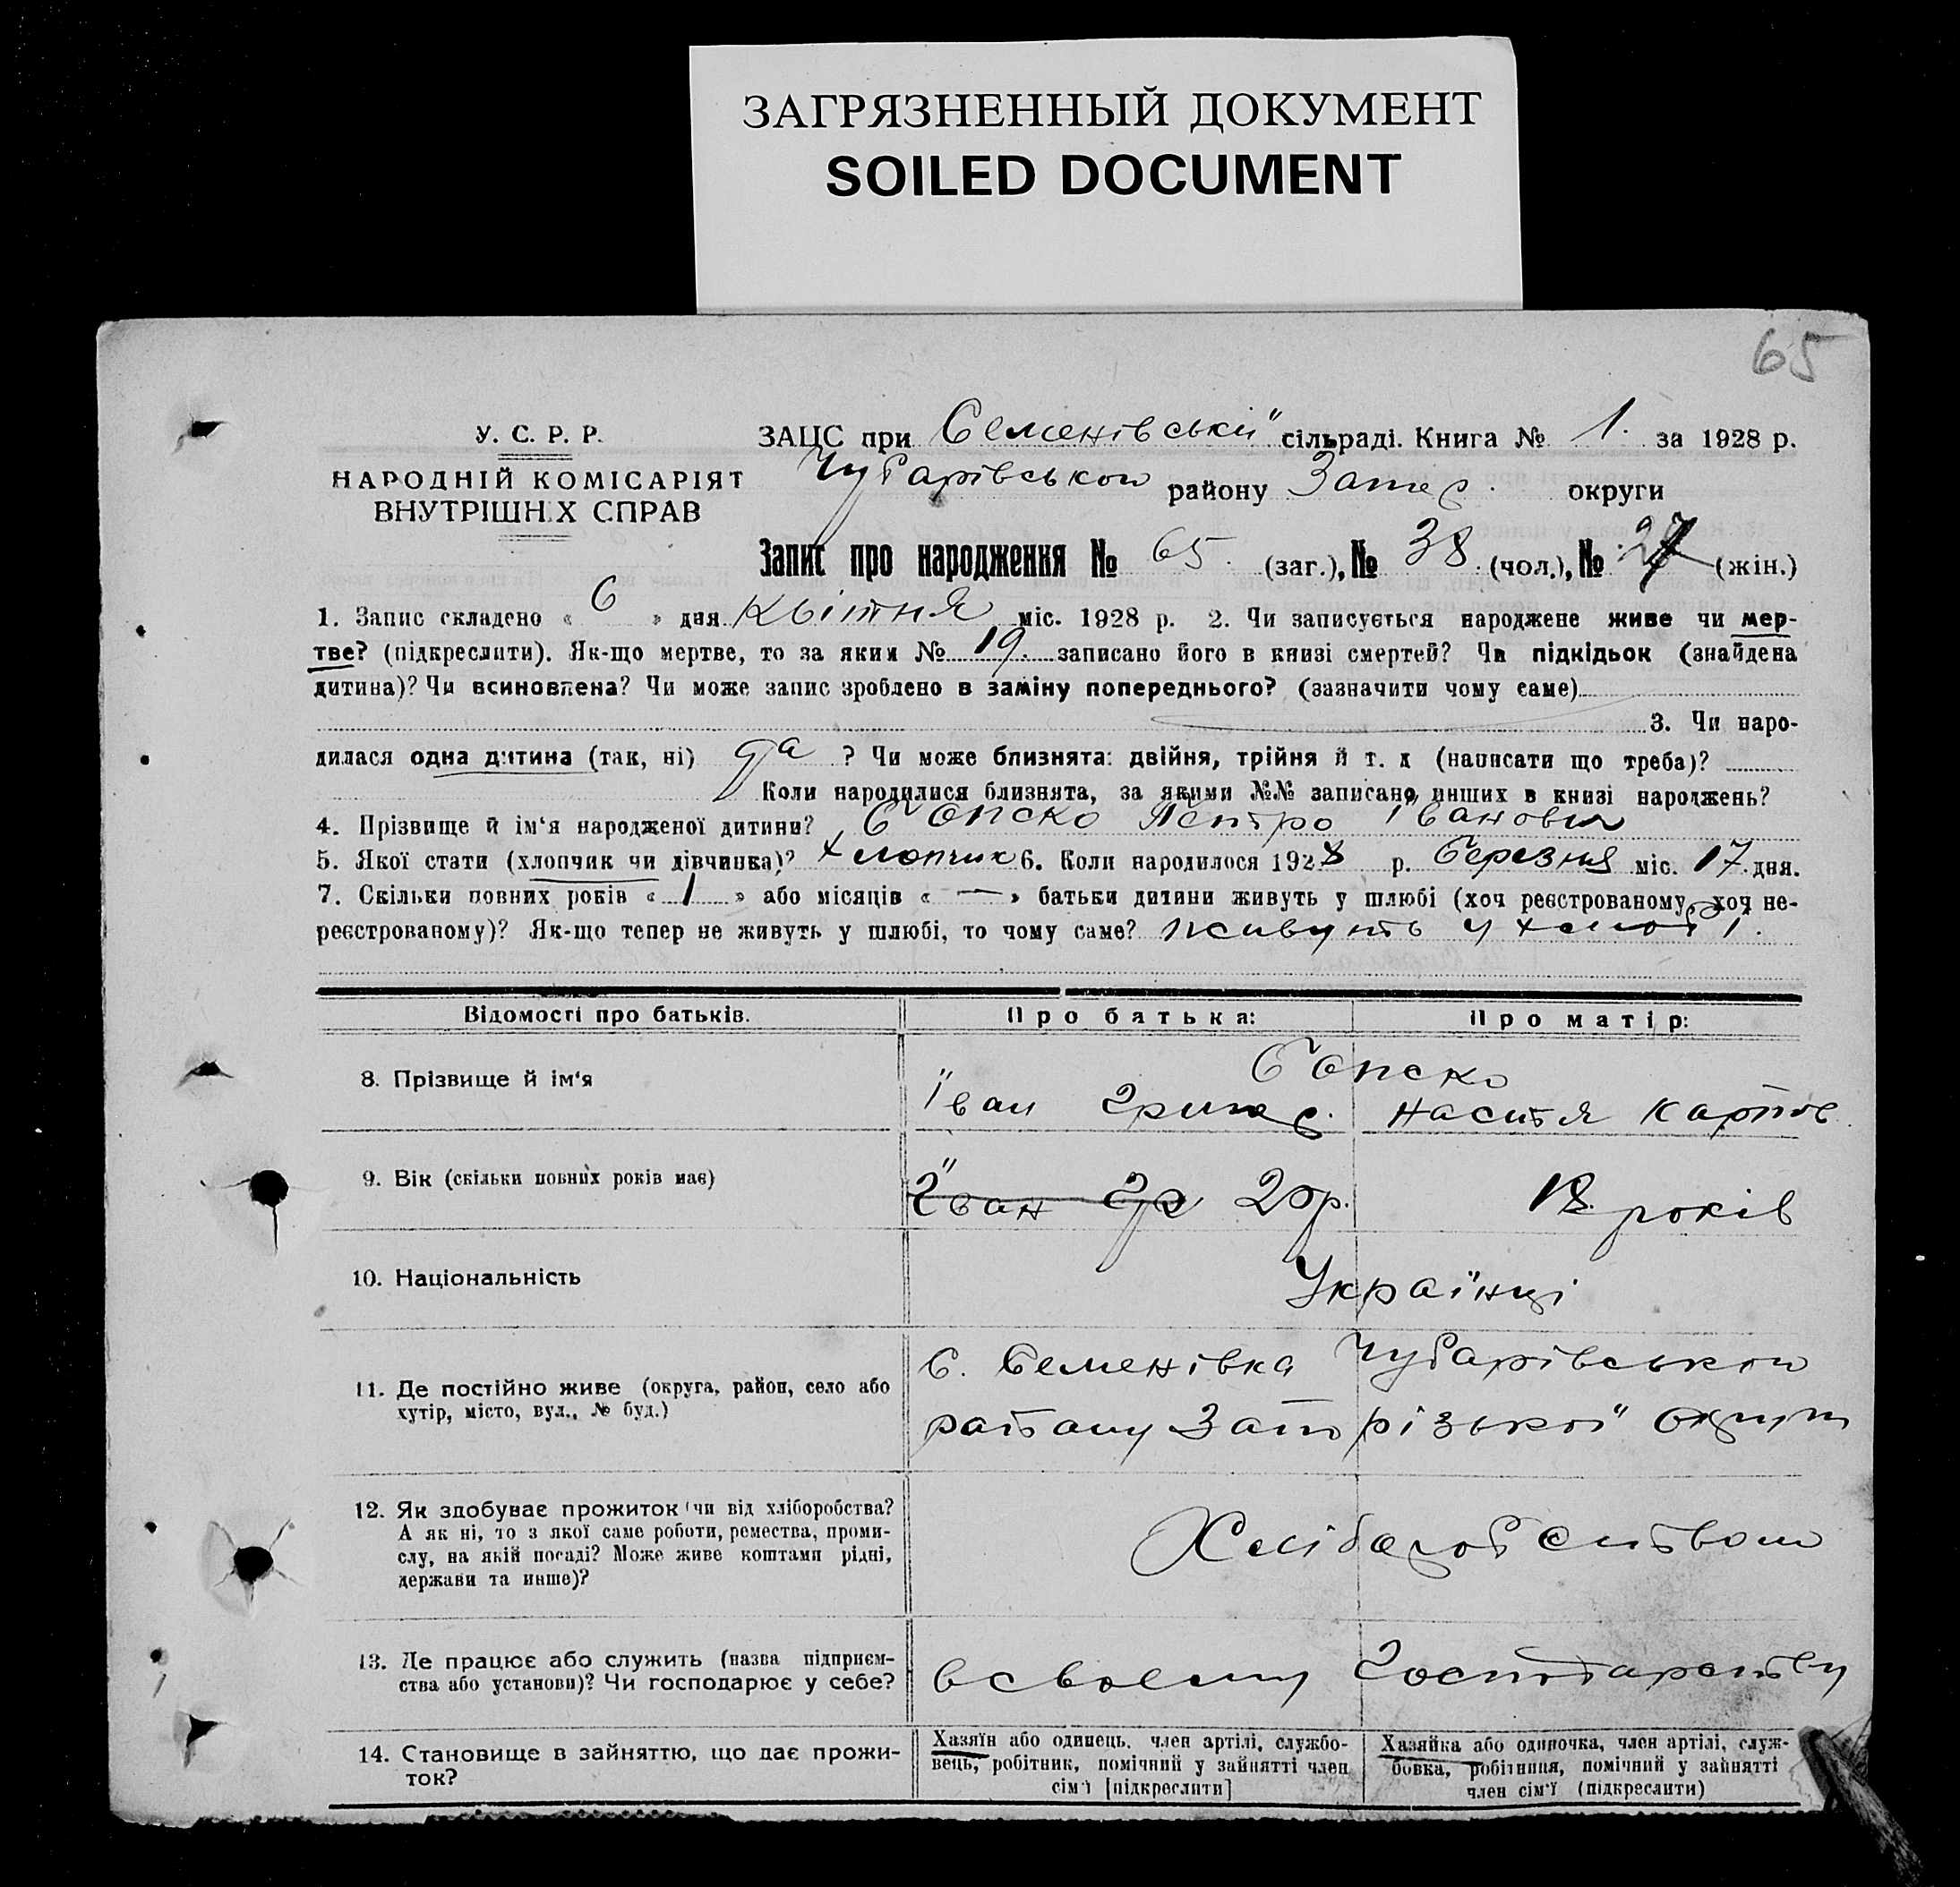 ЗАГРЯЗНЕННЫЙ ДОКУМЕНТ
SOILED DOCUMENT
65
У. С. Р. Р.
НАРОДНІЙ КОМІСАРІЯТ
ВНУТРІШНІХ СПРАВ
ЗАЦС при Семенівській сільраді. Книга № 1. за 1928 р.
Чубарівського району Запор. округи
Запис про народження № 65. (заг.), № 38 (чол.), № 27 (жін.)
1. Запис складено « 6 » дня Квітня міс. 1928 р. 2. Чи записується народжене живе чи мер-
тве? (підкреслити). Як-що мертве, то за яким № 19. записано його в книзі смертей? Чи підкідьок (знайдена
дитина)? Чи всиновлена? Чи може запис зроблено в заміну попереднього? (зазначити чому саме)
3. Чи наро-
дилася одна дитина (так, ні) да ? Чи може близнята: двійня, трійня й т. д (написати що треба)?
Коли народилися близнята, за якими №№ записано инших в книзі народжень?
4. Прізвище й ім'я народженої дитини? Петро Іванович
5. Якої стати (хлопчик чи дівчинка)? хлопчик 6. Коли народилося 1928 р. Березня міс. 17 дня.
7. Скільки повних років « 1 » або місяців « — » батьки дитини живуть у шлюбі (хоч реєстрованому, хоч не-
реєстрованому)? Як-що тепер не живуть у шлюбі, то чому саме? живуть у
Відомості про батьків.
Про батька:
Про матір:
8. Прізвище й ім'я
Іван Григ. Настя Карпов
9. Вік (скільки повних років має)
Іван Гр 20 р. 18 років
10. Національність
Українці
11. Де постійно живе (округа, район, село або
хутір, місто, вул., № буд.)
С. Семенівка Чубарівського
району Запорізької округи
12. Як здобуває прожиток (чи від хліборобства?
А як ні, то з якої саме роботи, ремества, проми-
слу, на якій посаді? Може живе коштами рідні,
держави та инше)?
Хліборобством
13. Де працює або служить (назва підприєм-
ства або установи)? Чи господарює у себе?
в своєму господарстві
14. Становище в зайняттю, що дає прожи-
ток?
Хазяїн або одинець, член артілі, службо-
вець, робітник, помічний у зайнятті член
сім'ї [підкреслити]
Хазяйка або одиночка, член артілі, служ-
бовка, робітниця, помічний у зайнятті
член сім'ї (підкреслити)